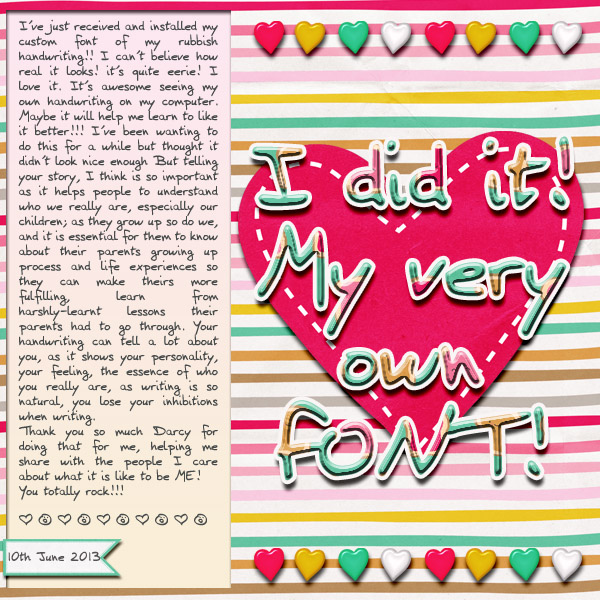 I've just received and installed my
custom font of my rubbish
handwriting!! I can't believe how
real it looks! it's quite eerie! I
love it. It's awesome seeing my
own handwriting on my computer.
Maybe it will help me learn to like
it better!!! I've been wanting to
do this for a while but thought it
didn't look nice enough But telling
your story, I think is so important
as it helps people to understand
who we really are, especially our
children; as they grow up so do we,
and it is essential for them to know
about their parents growing up
process and life experiences so
they can make theirs more
fulfilling, learn from
harshly-learnt lessons their
parents had to go through. Your
handwriting can tell a lot about
you, as it shows your personality,
your feeling, the essence of who
you really are, as writing is so
natural, you lose your inhibitions
when writing.
Thank you so much Darcy for
doing that for me, helping me
share with the people I care
about what it is like to be ME!
You totally rock!!!
10th June 2013
I did it!
My very
own
FONT!